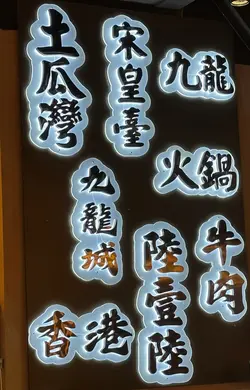 土瓜灣
宋皇臺
九龍
火鍋
九龍城
陸壹陸
牛肉
香港